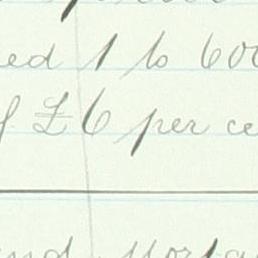 ed 1 to 600
f £6 per ce